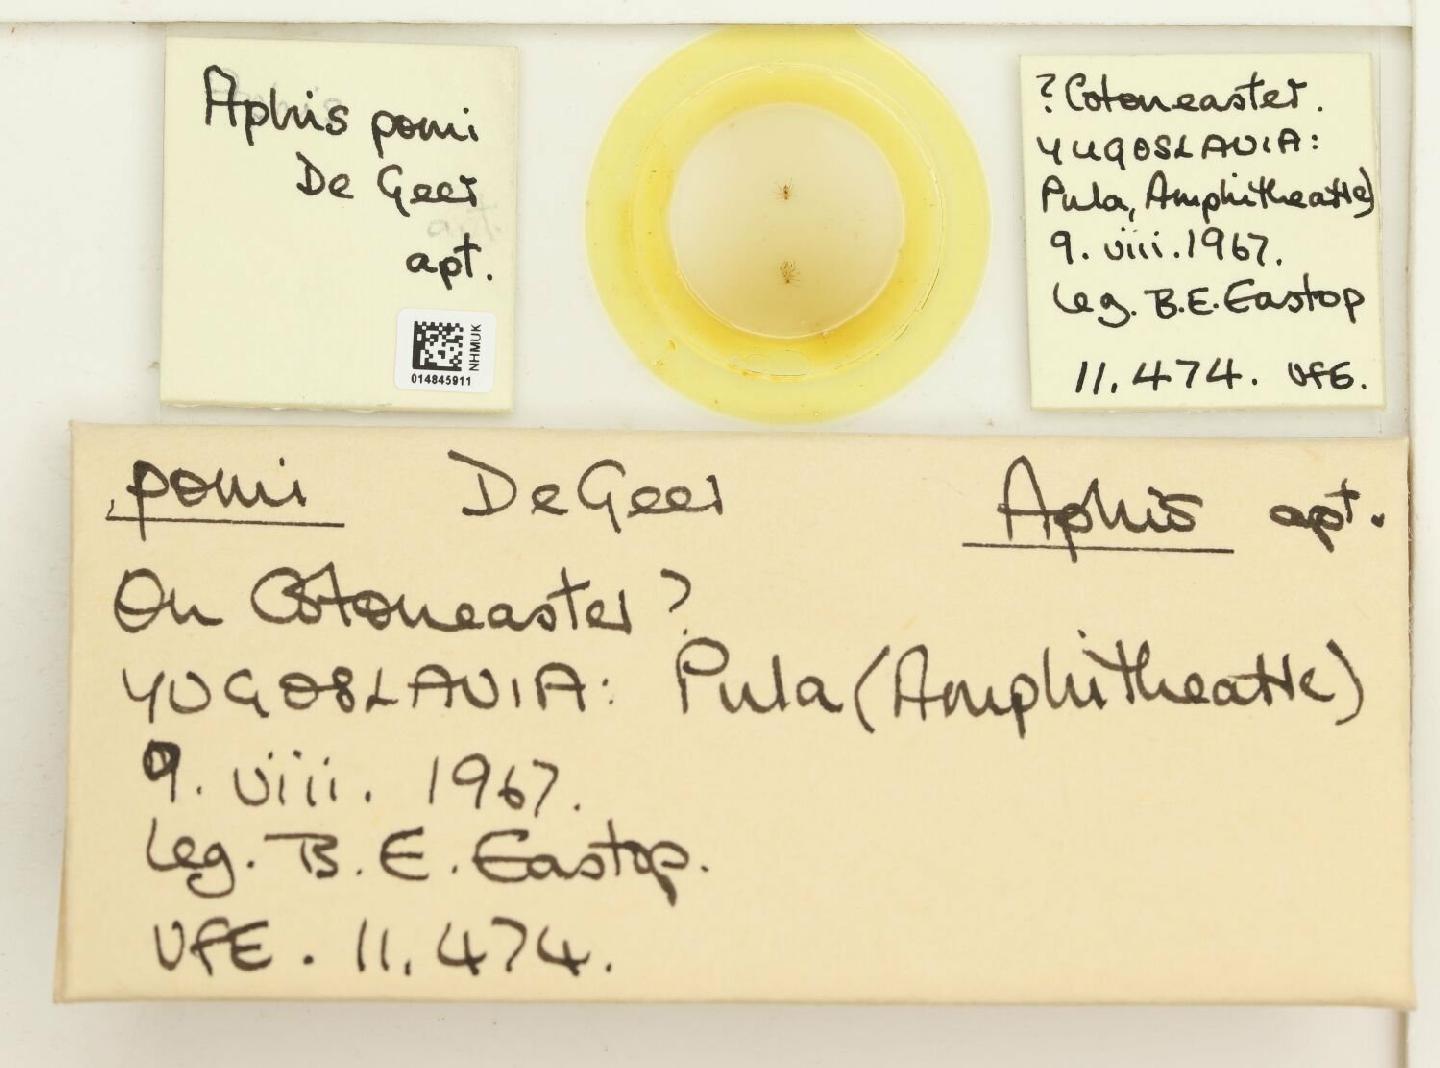 Aphis pomi
De Geer
apt.
NHMUK
014845911
?Cotoneaster.
YUGOSLAVIA:
Pula, Amphitheatre)
9. viii. 1967.
leg. B.E. Eastop
11.474. VFE.
pomi De Geer Aphis apt.
On Cotoneaster?
YUGOSLAVIA: Pula (Amphitheatre)
9. viii. 1967.
leg. B. E. Eastop.
VFE. 11.474.